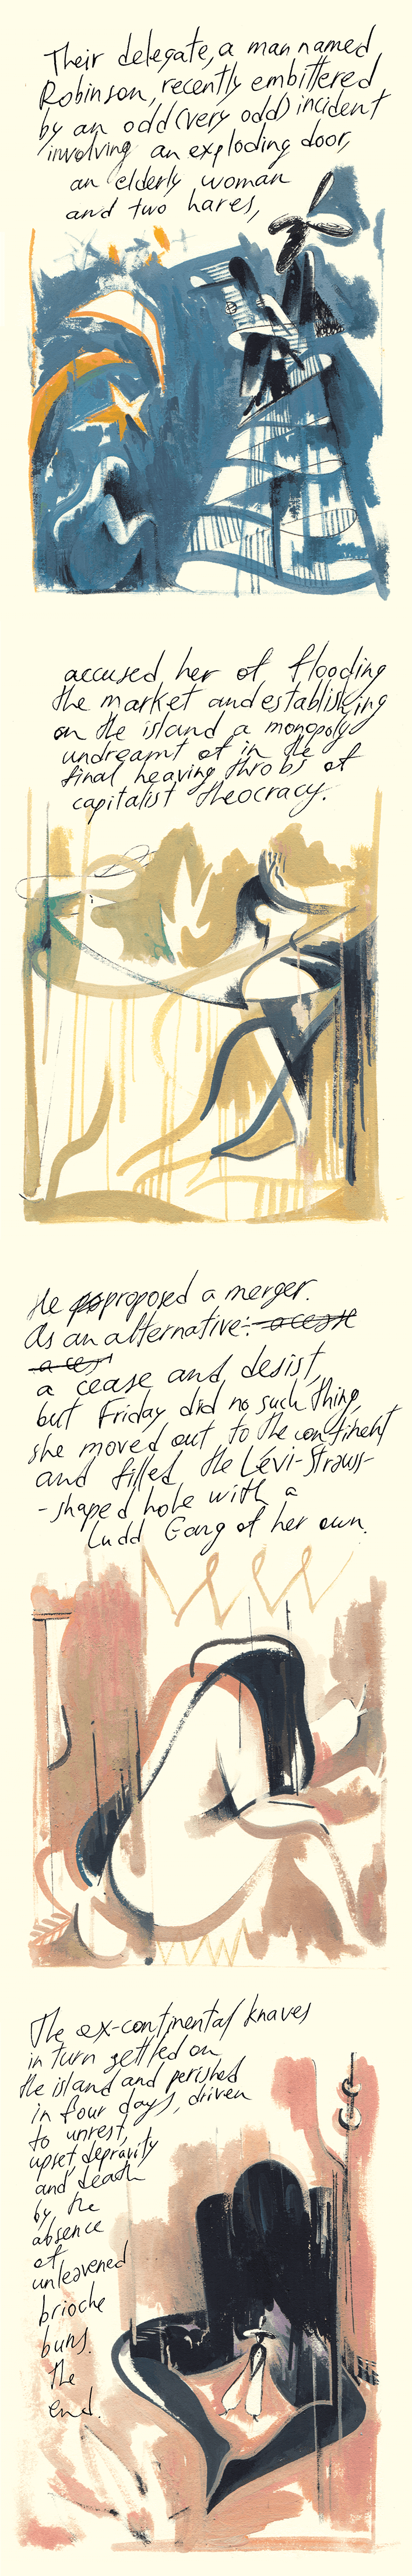 Their delegate, a man named
Robinson, recently embittered
by an odd (very odd) incident
involving an exploding door,
an elderly woman
and two hares,
accused her of flooding
the market and establishing
on the island a monopoly
undreamt of in the
final heaving throbs of
capitalist theocracy.
He proposed a merger.
As an alternative:
a cease and desist,
but Friday did no such thing,
she moved out to the continent
and filled the Lévi-Strauss-
-shaped hole with a
Ludd Gang of her own.
The ex-continental knaves
in turn settled on
the island and perished
in four days, driven
to unrest,
upset, depravity
and death
by the
absence
of
unleavened
brioche
buns.
The
end.